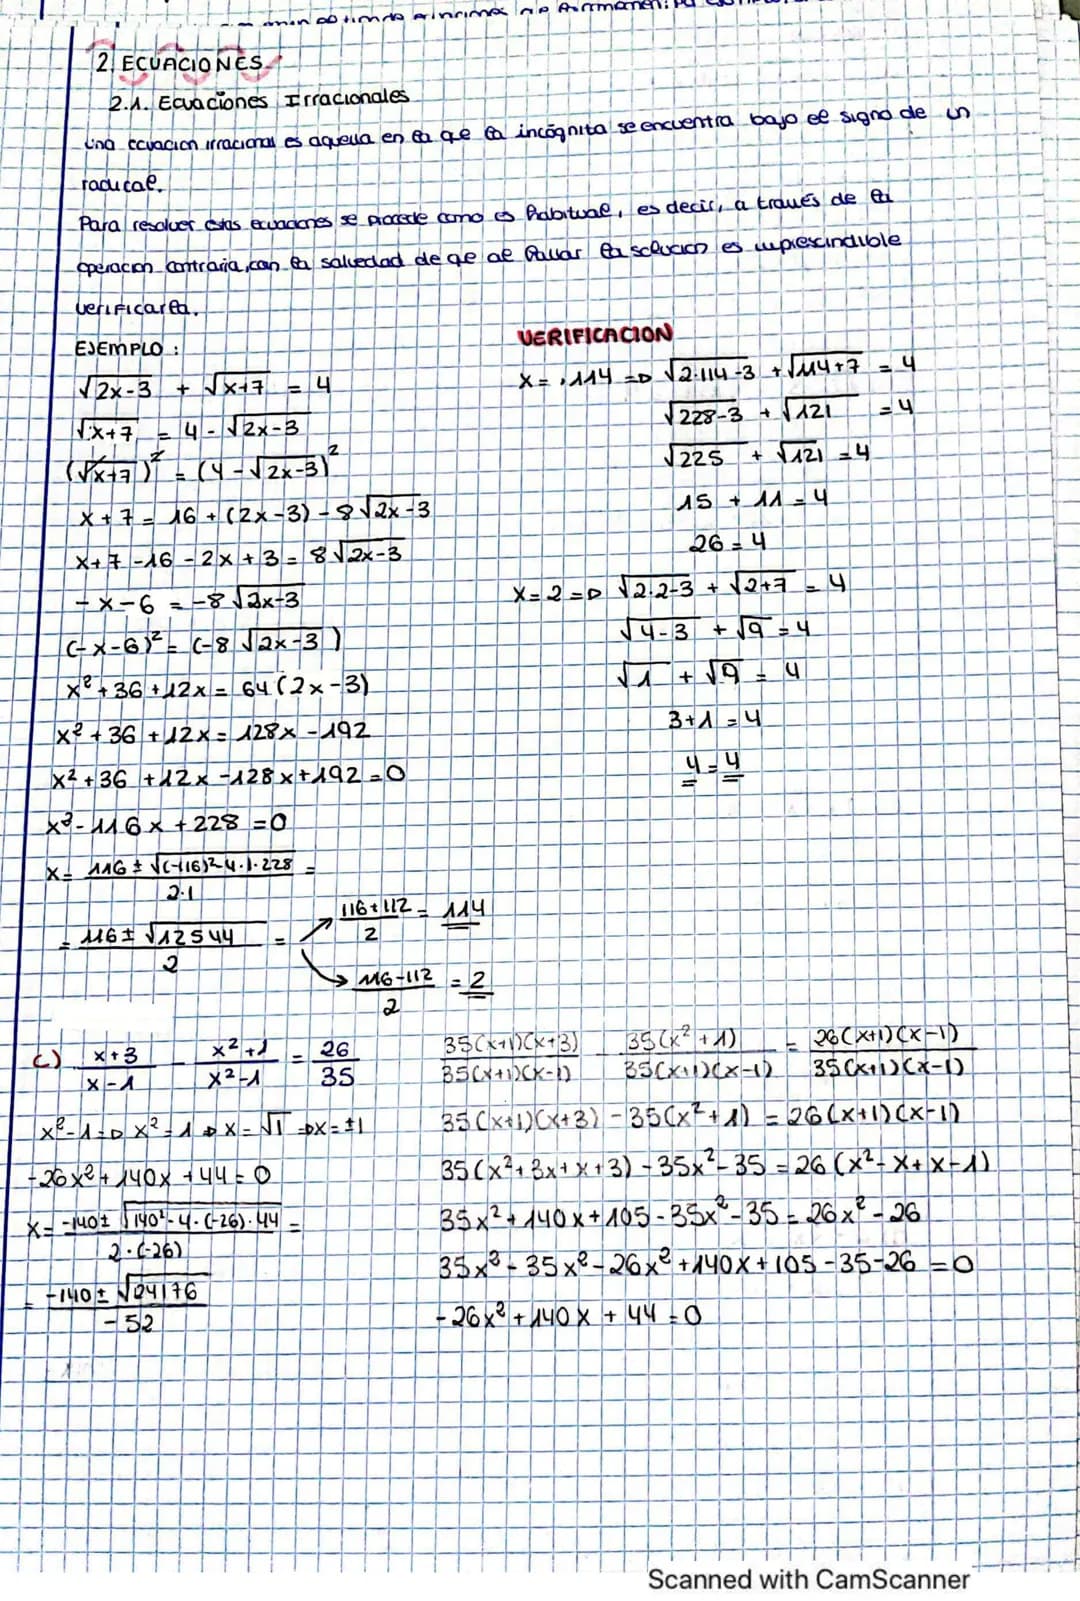 2. ECUACIONES
2.1. Ecuaciones Irracionales
Una ecuación irracional es aquella en la que la incógnita se encuentra bajo el signo de un
radical.
Para resolver estas ecuaciones se procede como es habitual, es decir, a través de la
operación contraria, con la salvedad de qe al hallar la solución es imprescindible
verificarla.
EJEMPLO :
√(2x-3) + √(x+7) = 4
√(x+7) = 4 - √(2x-3)
(√(x+7))² = (4 - √(2x-3))²
x + 7 = 16 + (2x-3) - 8√(2x-3)
x + 7 - 16 - 2x + 3 = 8√(2x-3)
- x - 6 = -8√(2x-3)
(-x-6)² = (-8√(2x-3))
x² + 36 + 12x = 64(2x-3)
x² + 36 + 12x = 128x - 192
x² + 36 + 12x - 128x + 192 = 0
x² - 116x + 228 = 0
x = (116 ± √((-116)² - 4·1·228)) / 2·1 =
= (116 ± √12544) / 2 =
(116+112) / 2 = 114
(116-112) / 2 = 2
VERIFICACION
x = 114 => √(2·114-3) + √(114+7) = 4
√(228-3) + √121 = 4
√225 + √121 = 4
15 + 11 = 4
26 = 4
x = 2 => √(2·2-3) + √(2+7) = 4
√(4-3) + √9 = 4
√1 + √9 = 4
3+1 = 4
4 = 4
c) (x+3)/(x-1) - (x²+1)/(x²-1) = 26/35
x²-1 => x² = 1 => x = √1 => x = ±1
-26x² + 140x + 44 = 0
x = (-140 ± √(140² - 4·(-26)·44)) / 2·(-26) =
= (-140 ± √24176) / -52
35(x+1)(x+3) / 35(x+1)(x-1) - 35(x²+1) / 35(x+1)(x-1) = 26(x+1)(x-1) / 35(x+1)(x-1)
35(x+1)(x+3) - 35(x²+1) = 26(x+1)(x-1)
35(x²+3x+x+3) - 35x² - 35 = 26(x²-x+x-1)
35x² + 140x + 105 - 35x² - 35 = 26x² - 26
35x² - 35x² - 26x² + 140x + 105 - 35 - 26 = 0
-26x² + 140x + 44 = 0
Scanned with CamScanner